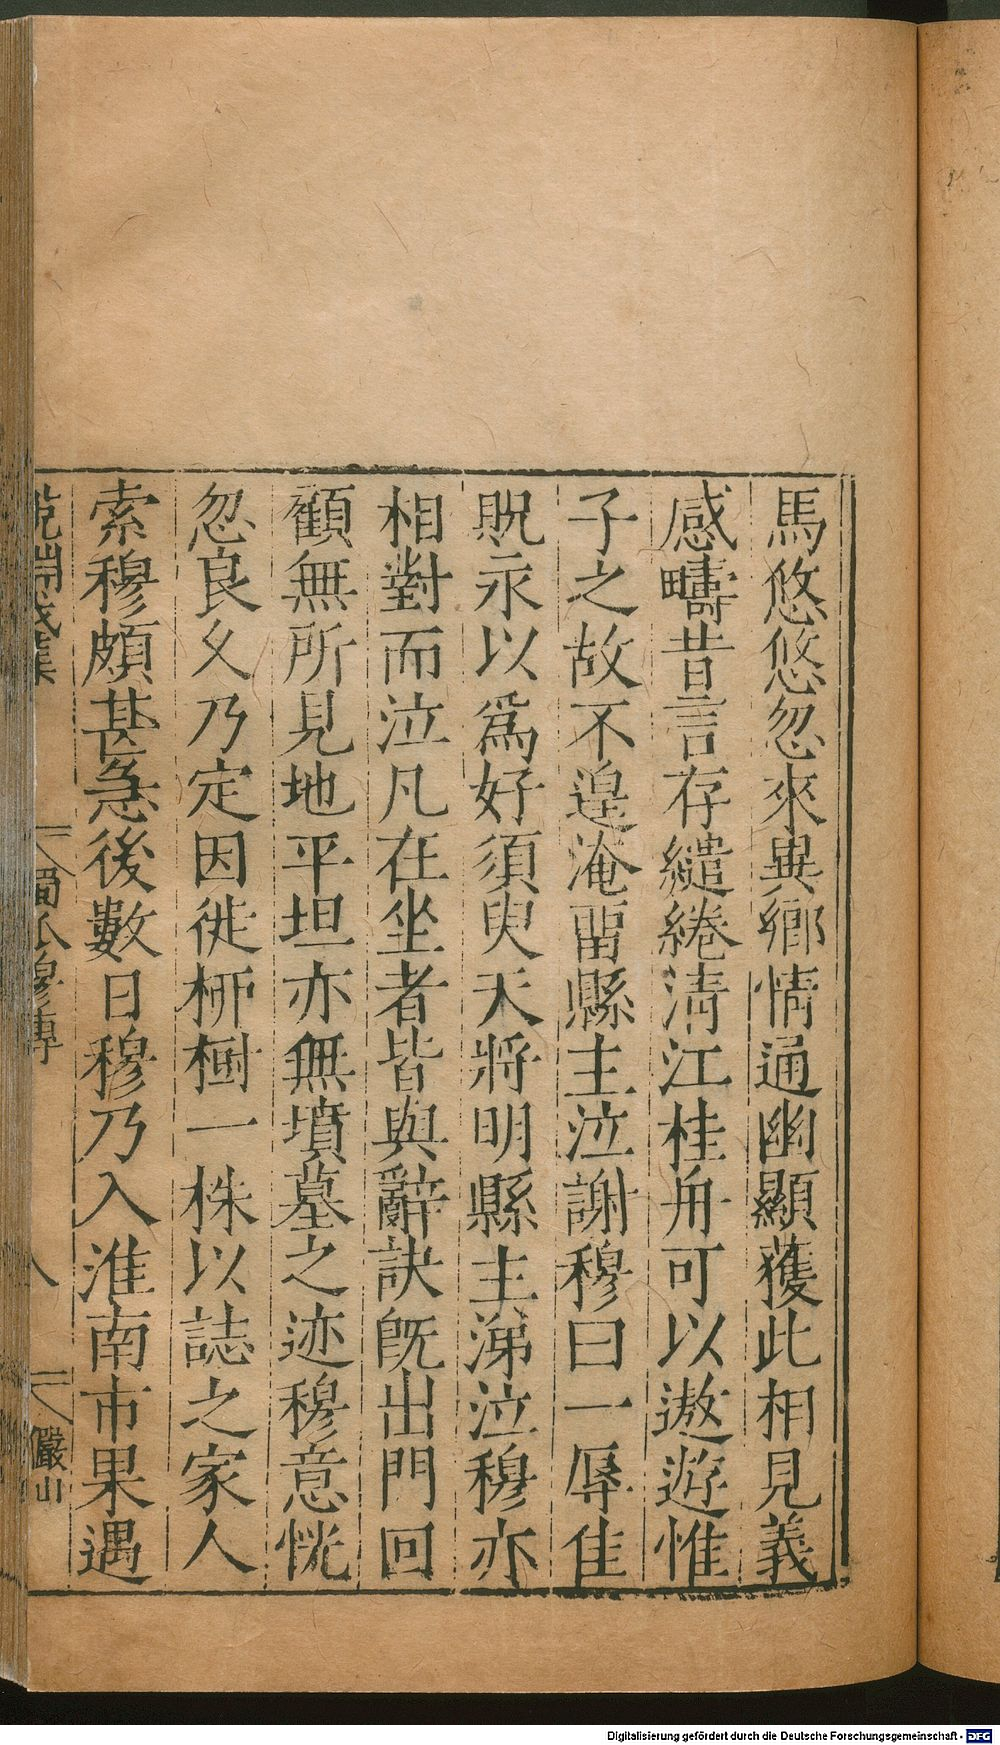 馬悠悠忽來異鄉情通幽顯獲此相見義
感疇昔言存繾綣清江桂舟可以遨遊惟
子之故不遑淹畱縣主泣謝穆曰一辱佳
貺永以爲好須臾天將明縣主涕泣穆亦
相對而泣凡在坐者皆與辭訣旣出門回
顧無所見地平坦亦無墳墓之迹穆意恍
忽良久乃定因徙柳樹一株以誌之家人
索穆頗甚急後數日穆乃入淮南市果遇
獨孤穆傳
八
儼山
Digitalisierung gefördert durch die Deutsche Forschungsgemeinschaft - DFG